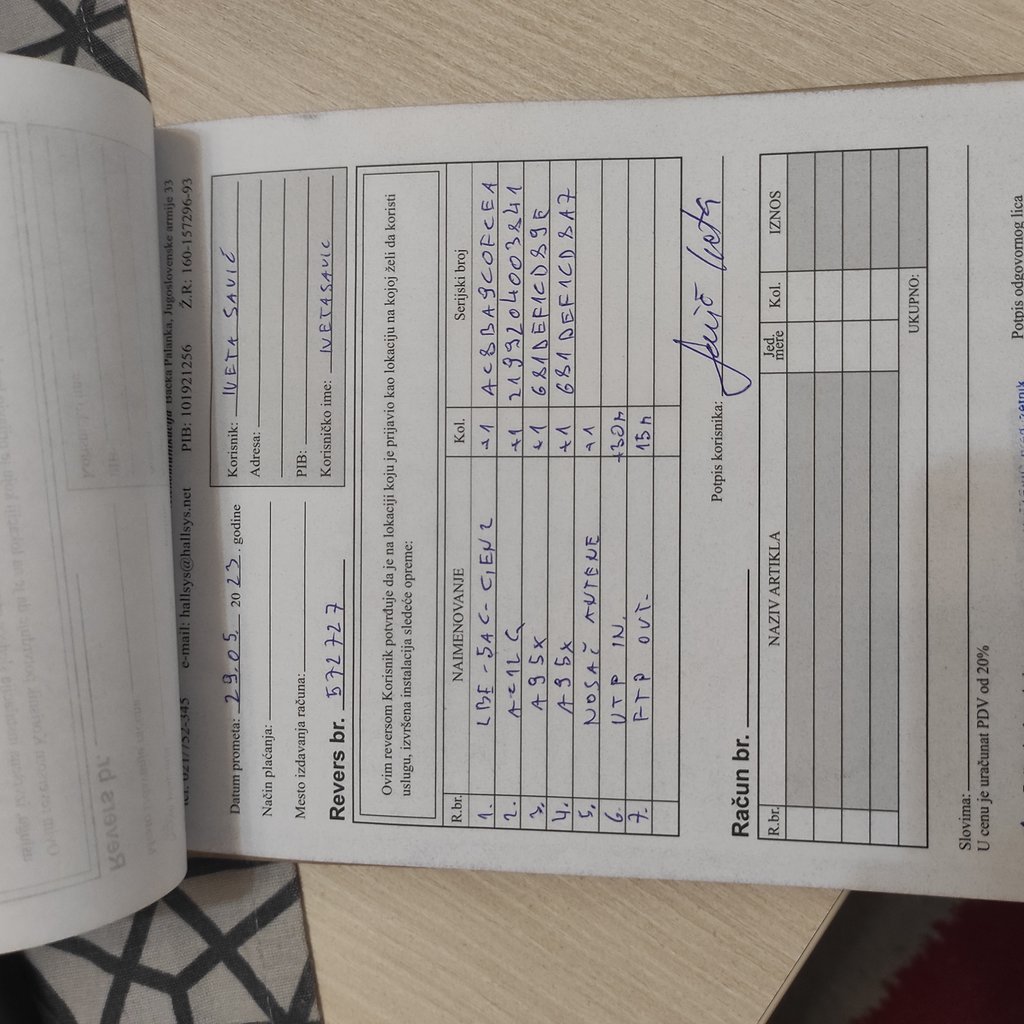 Bačka Palanka, Jugoslovenske armije 33
e-mail: hallsys@hallsys.net PIB: 101921256 Ž.R: 160-157296-93
Datum prometa: 29.05. 2023. godine
Način plaćanja:
Mesto izdavanja računa:
Revers br. 572727
Korisnik: IVETA SAVIĆ
Adresa:
PIB:
Korisničko ime: IVETASAVIC
Ovim reversom Korisnik potvrđuje da je na lokaciji koju je prijavio kao lokaciju na kojoj želi da koristi
uslugu, izvršena instalacija sledeće opreme:
R.br. NAIMENOVANJE Kol. Serijski broj
1. LBE-5AC-GEN2 +1 AC8BA9C0FCEA
2. AC12G +1 2199204003841
3. A95X +1 681DEF1CD89E
4. A95X +1 681DEF1CD8A7
5. NOSAČ ANTENE +1
6. UTP IN. +30m
7. FTP OUT. 15m
Potpis korisnika: Savić Iveta
Račun br.
R.br. NAZIV ARTIKLA Jed. mere Kol. IZNOS
UKUPNO:
Slovima:
U cenu je uračunat PDV od 20%
Potpis odgovornog lica